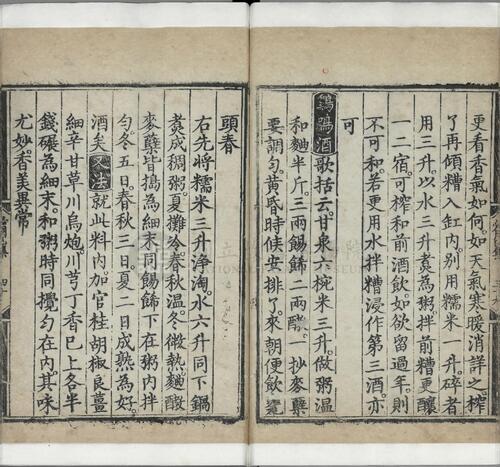 更看香氣如何。如天氣寒暖消詳之。榨
了再傾糟入缸内。别用糯米一升。碎者
用三升。以水三升煑為粥。拌前糟。更釀
一二宿。可榨。和前酒飲。如欲留過年。則
不可和。若更用水拌糟浸作第三酒。亦
可
鷄鳴酒歌括云。甘泉六椀米三升。做粥温
和麯半斤。三兩餳餙二兩酵。一抄麥糵
要調匀。黄昏時候安排了。來朝便飲瓮
頭春
右先將糯米三升淨淘。水六升同下鍋
煑成稠粥。夏攤冷春秋温。冬微熱。麯酵
麥糵皆擣為細末。同餳餙下在粥内拌
匀。冬五日。春秋三日。夏二日成熟。為好
酒矣 又法 就此料内。加官桂胡椒良薑
細辛甘草川烏炮川芎丁香已上各半
錢碾為細末。和粥時同攪匀在内。其味
尤妙。香美異常